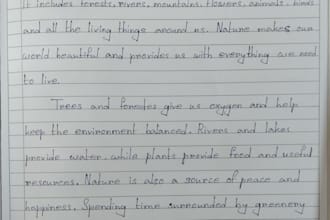 It includes forests, rivers, mountains, flowers, animals, birds
and all the living things around us. Nature makes our
world beautiful and provides us with everything we need
to live.
Trees and forestes give us oxygen and help
keep the environment balanced. Rivers and lakes
provide water, while plants provide food and useful
resources. Nature is also a source of peace and
happiness. Spending time surrounded by greenery